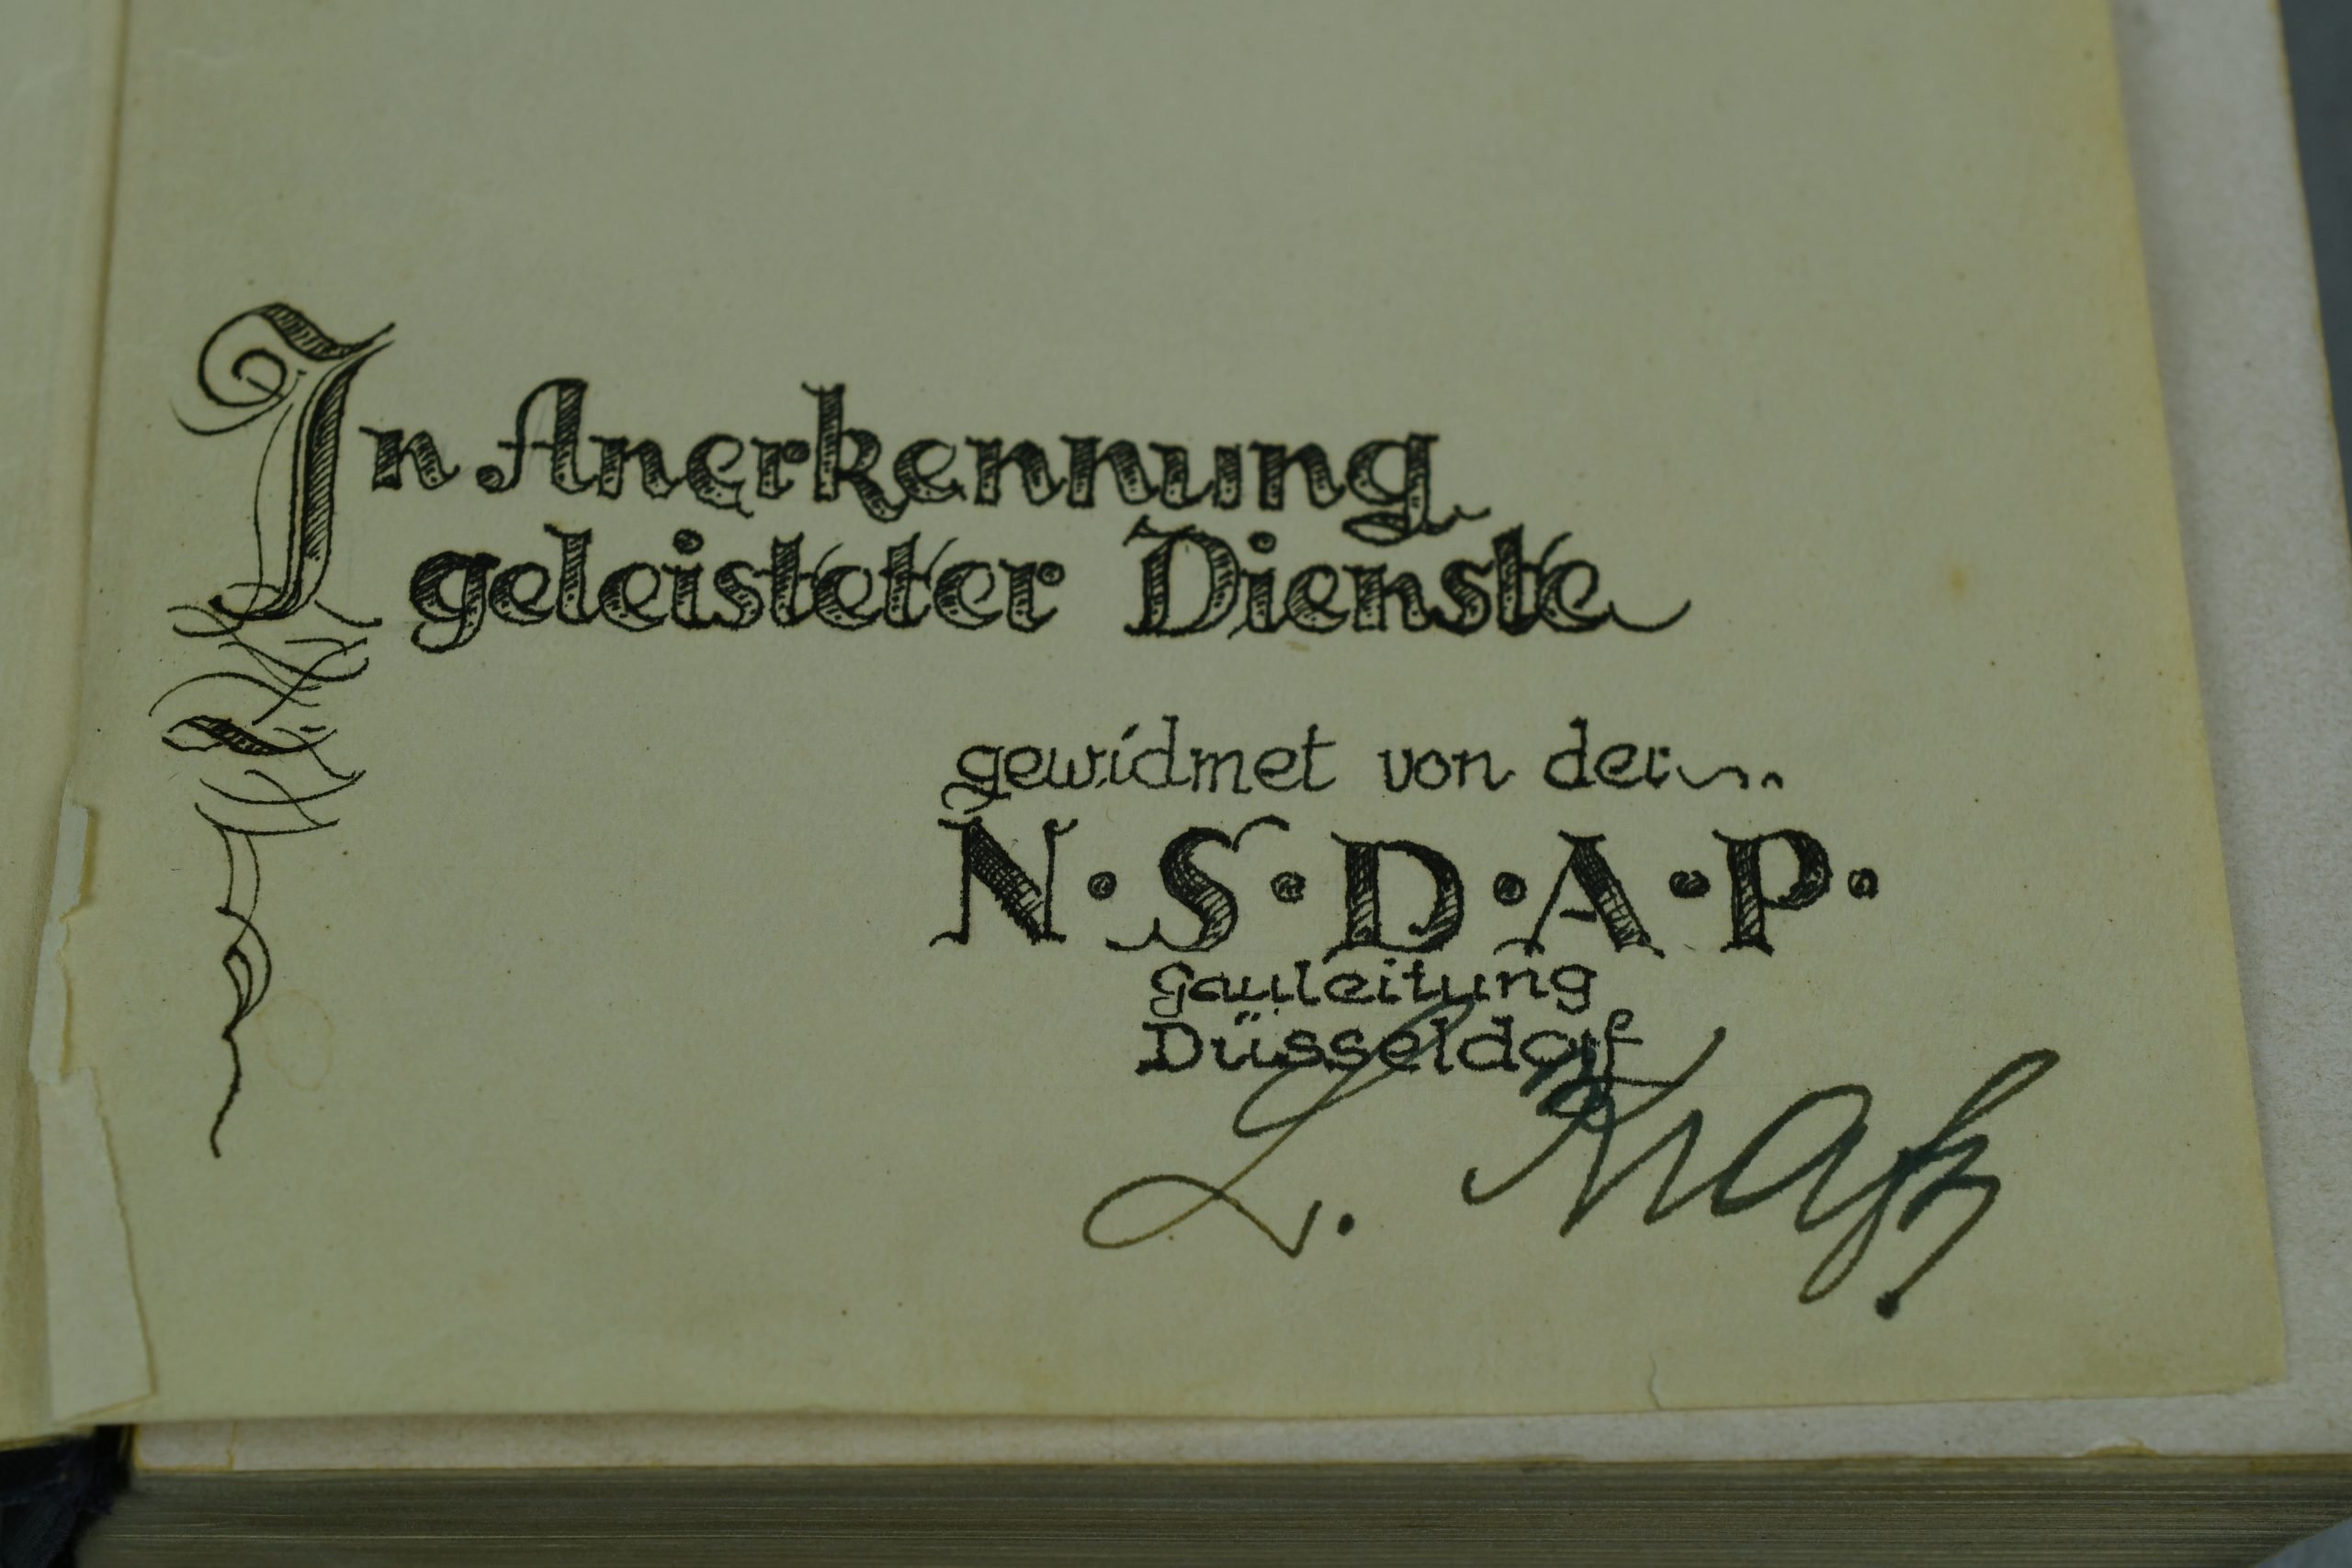 In Anerkennung
geleisteter Dienste
gewidmet von der
N·S·D·A·P·
Gauleitung
Düsseldorf
L.